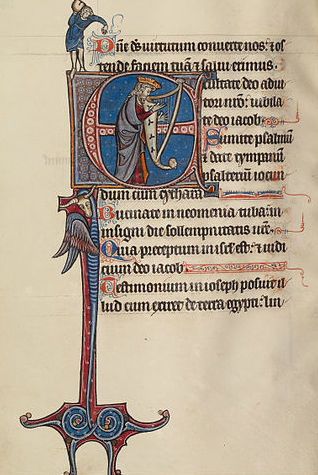 Dñe ds̃ virtutum converte nos: ⁊ os
tende faciem tuã ⁊ salvi erimus.
Exultate deo adiu
tori nr̃o: iubila
te deo iacob.
Sumite psalmũ
⁊ date tympanũ
psalterium iocun
dum cum cythara.
Bucinate in neomenia tuba: in
insigni die sollempnitatis vr̃e.
Quia preceptum in isrl̃ est: ⁊ iudi
cium deo iacob.
Testimonium in ioseph posuit il
lud cum exiret de terra egypti: lin